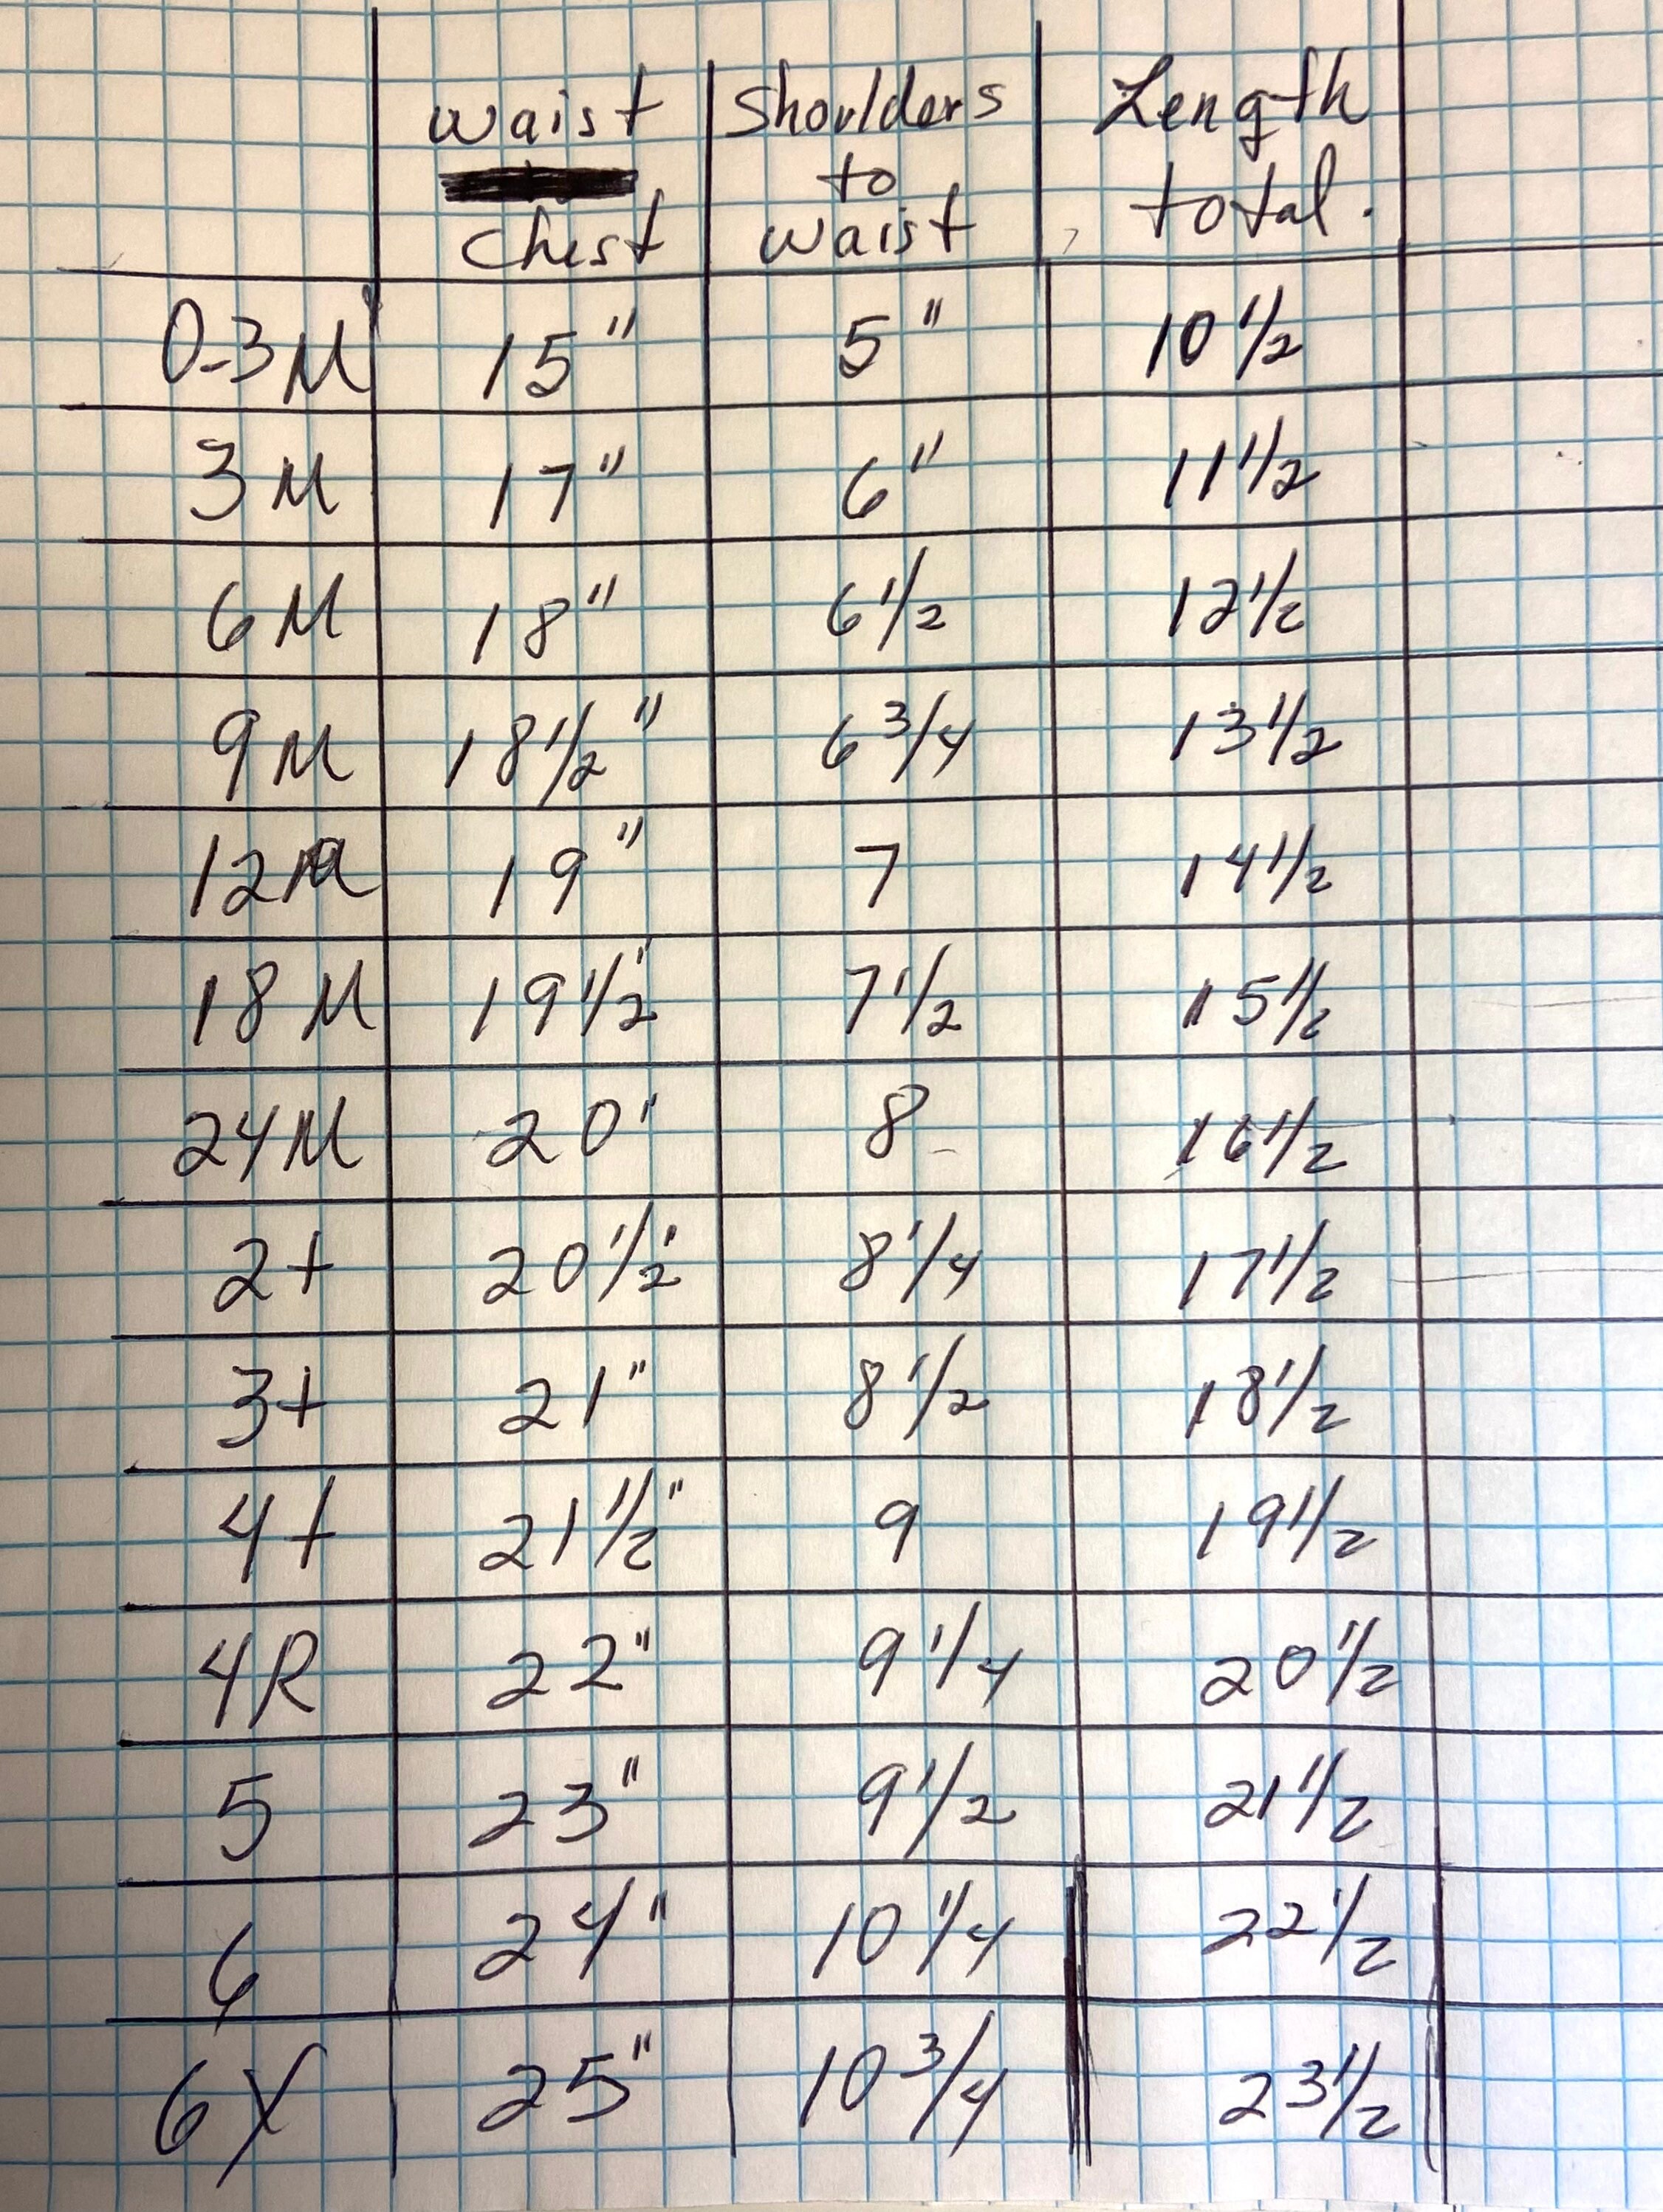 waist Shoulders Length
to total.
chest waist
0-3M 15" 5" 10 1/2
3M 17" 6" 11 1/2
6M 18" 6 1/2 12 1/2
9M 18 1/2" 6 3/4 13 1/2
12M 19" 7 14 1/2
18M 19 1/2" 7 1/2 15 1/2
24M 20" 8 16 1/2
2t 20 1/2" 8 1/4 17 1/2
3t 21" 8 1/2 18 1/2
4t 21 1/2" 9 19 1/2
4R 22" 9 1/4 20 1/2
5 23" 9 1/2 21 1/2
6 24" 10 1/4 22 1/2
6X 25" 10 3/4 23 1/2